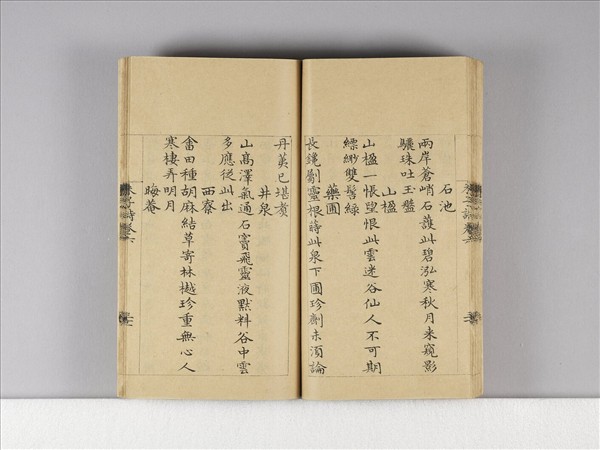 石池
兩岸蒼峭石護此碧泓寒秋月来窺影
驪珠吐玉盤
山楹
山楹一悵望恨此雲迷谷仙人不可期
縹緲雙髻緑
藥圃
長鑱斸靈根蒔此泉下圃珍劑未須論
丹荑已堪煮
井泉
山高澤氣通石竇飛靈液默料谷中雲
多應從此出
西寮
畬田種胡麻結草寄林樾珍重無心人
寒棲弄明月
晦菴